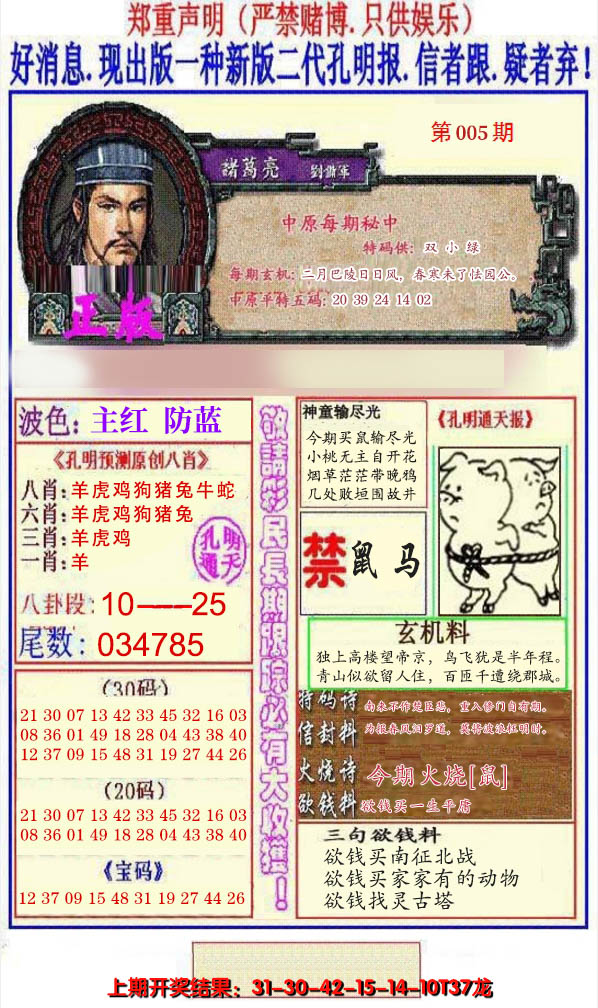 郑重声明（严禁赌博.只供娱乐）
好消息.现出版一种新版二代孔明报.信者跟.疑者弃！
第005期
諸葛亮
中原每期秘中
特码供：双 小 绿
每期玄机：二月巴陵日日风，春寒未了怯园公。
中原平特五码：20 39 24 14 02
正版
波色：主红 防蓝
《孔明预测原创八肖》
八肖：羊虎鸡狗猪兔牛蛇
六肖：羊虎鸡狗猪兔
三肖：羊虎鸡
一肖：羊
孔明
通天
八卦段：10——25
尾数：034785
（30码）
21 30 07 13 42 33 45 32 16 03
08 36 01 49 18 28 04 43 38 40
12 37 09 15 48 31 19 27 44 26
（20码）
21 30 07 13 42 33 45 32 16 03
08 36 01 49 18 28 04 43 38 40
《宝码》
12 37 09 15 48 31 19 27 44 26
敬請彩民長期跟踪必有大收獲！
神童输尽光
今期买鼠输尽光
小桃无主自开花
烟草茫茫带晚鸦
几处败垣围故井
《孔明通天报》
禁 鼠 马
玄机料
独上高楼望帝京，鸟飞犹是半年程。
青山似欲留人住，百匝千遭绕郡城。
特码诗
南来不作楚臣悲，重入修门自有期。
信封料
为报春风汨罗道，莫将波浪枉明时。
火烧诗
今期火烧[鼠]
欲钱料
欲钱买一生平庸
三句欲钱料
欲钱买南征北战
欲钱买家家有的动物
欲钱找灵古塔
上期开奖结果：31-30-42-15-14-10T37龙